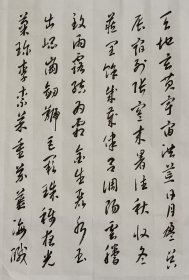 天地玄黄宇宙洪荒日月盈昃
辰宿列張寒來暑往秋收冬
藏閏餘成歲律吕調陽雲騰
致雨露結爲霜金生麗水玉
出崐崗劍號巨闕珠稱夜光
菓珍李柰菜重芥薑海鹹